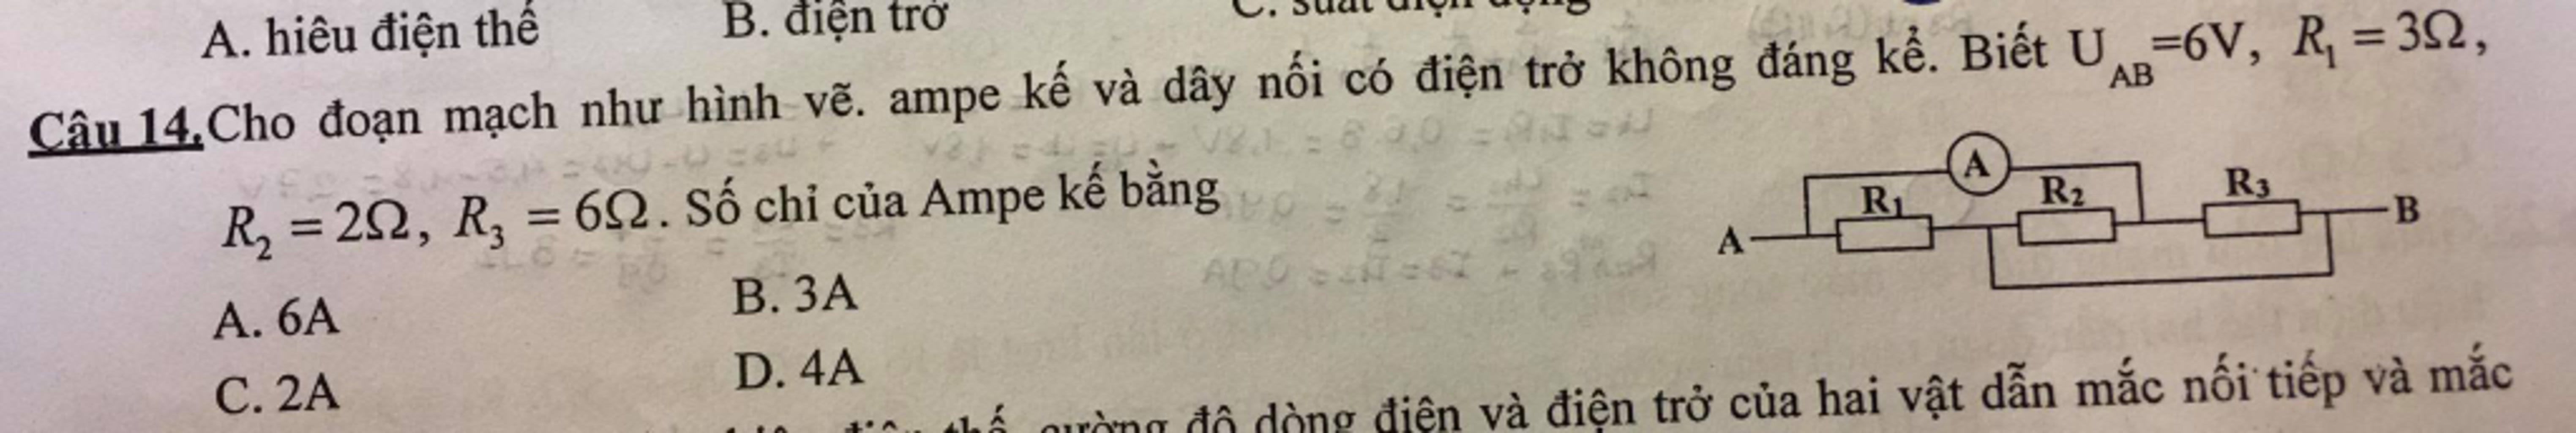 A. hiêu điện thế B. điện trở
Câu 14.Cho đoạn mạch như hình vẽ. ampe kế và dây nối có điện trở không đáng kể. Biết U_AB=6V, R₁ = 3Ω,
R₂ = 2Ω, R₃ = 6Ω. Số chỉ của Ampe kế bằng
A
R₁ R₂ R₃
A B
A. 6A B. 3A
C. 2A D. 4A
thế, cường độ dòng điện và điện trở của hai vật dẫn mắc nối tiếp và mắc